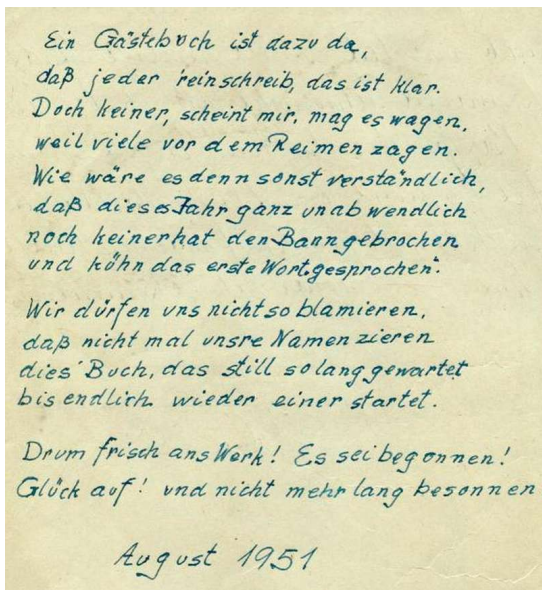 Ein Gästebuch ist dazu da,
daß jeder reinschreib, das ist klar.
Doch keiner, scheint mir, mag es wagen,
weil viele vor dem Reimen zagen.
Wie wäre es denn sonst verständlich,
daß dieses Jahr ganz unabwendlich
noch keiner hat den Bann gebrochen
und kühn das erste Wort gesprochen.
Wir dürfen uns nicht so blamieren,
daß nicht mal unsre Namen zieren
dies Buch, das still so lang gewartet
bis endlich wieder einer startet.
Drum frisch ans Werk! Es sei begonnen!
Glück auf! und nicht mehr lang besonnen
August 1951